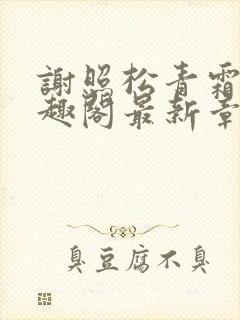 謝照松青霜
趣閣最新章
臭豆腐不臭